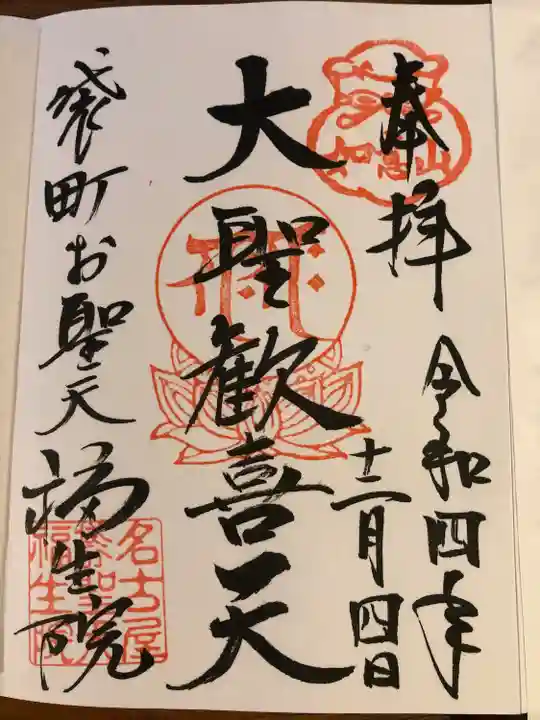 奉拝
令和四年
十二月四日
大聖歓喜天
袋町お聖天
福生院
如意山
名古屋
福生院